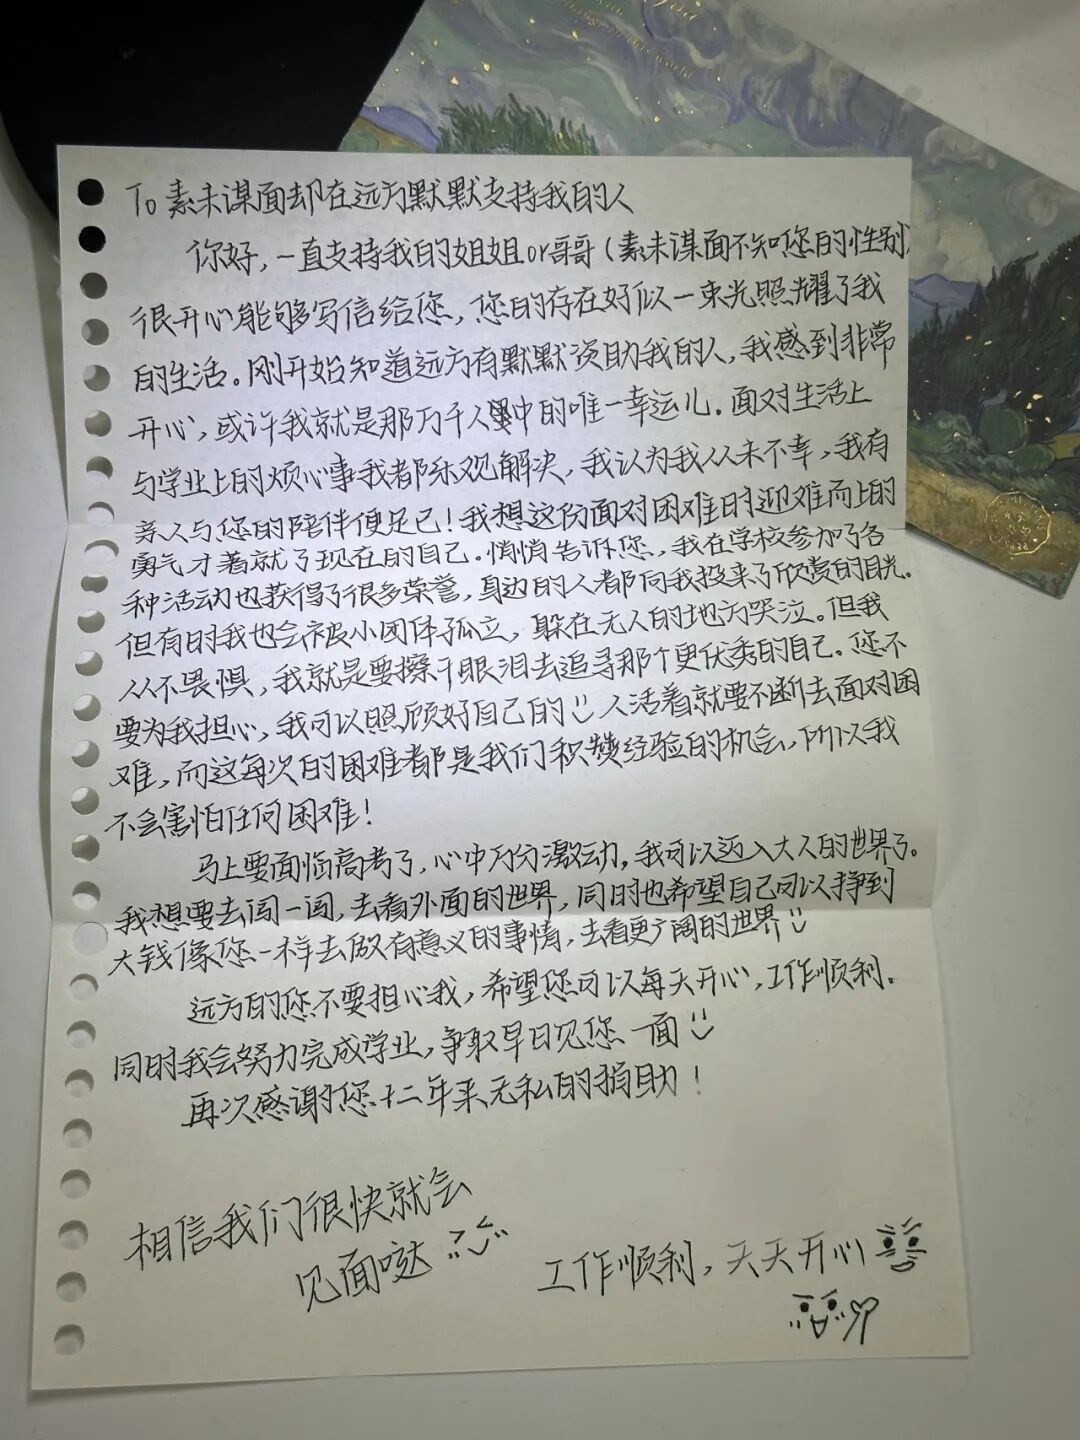 To 素未谋面却在远方默默支持我的人
你好，一直支持我的姐姐or哥哥（素未谋面不知您的性别）
很开心能够写信给您，您的存在好似一束光照耀了我
的生活。刚开始知道远方有默默资助我的人，我感到非常
开心，或许我就是那万千人中的唯一幸运儿。面对生活上
与学业上的烦心事我都乐观解决，我认为我从未不幸，我有
亲人与您的陪伴便足已！我想这份面对困难时迎难而上的
勇气才著就了现在的自己。悄悄告诉您，我在学校参加了各
种活动也获得了很多荣誉，身边的人都向我投来了欣赏的目光。
但有时我也会被小团体孤立，躲在无人的地方哭泣。但我
从不畏惧，我就是要擦干眼泪去追寻那个更优秀的自己。您不
要为我担心，我可以照顾好自己的 人活着就要不断去面对困
难，而这每次的困难都是我们积攒经验的机会，所以我
不会害怕任何困难！
马上要面临高考了，心中万分激动，我可以迈入大人的世界了。
我想要去闯一闯，去看外面的世界，同时也希望自己可以挣到
大钱像您一样去做有意义的事情，去看更广阔的世界
远方的您不要担心我，希望您可以每天开心，工作顺利。
同时我会努力完成学业，争取早日见您一面
再次感谢您十二年来无私的捐助！
相信我们很快就会
见面哒
工作顺利，天天开心